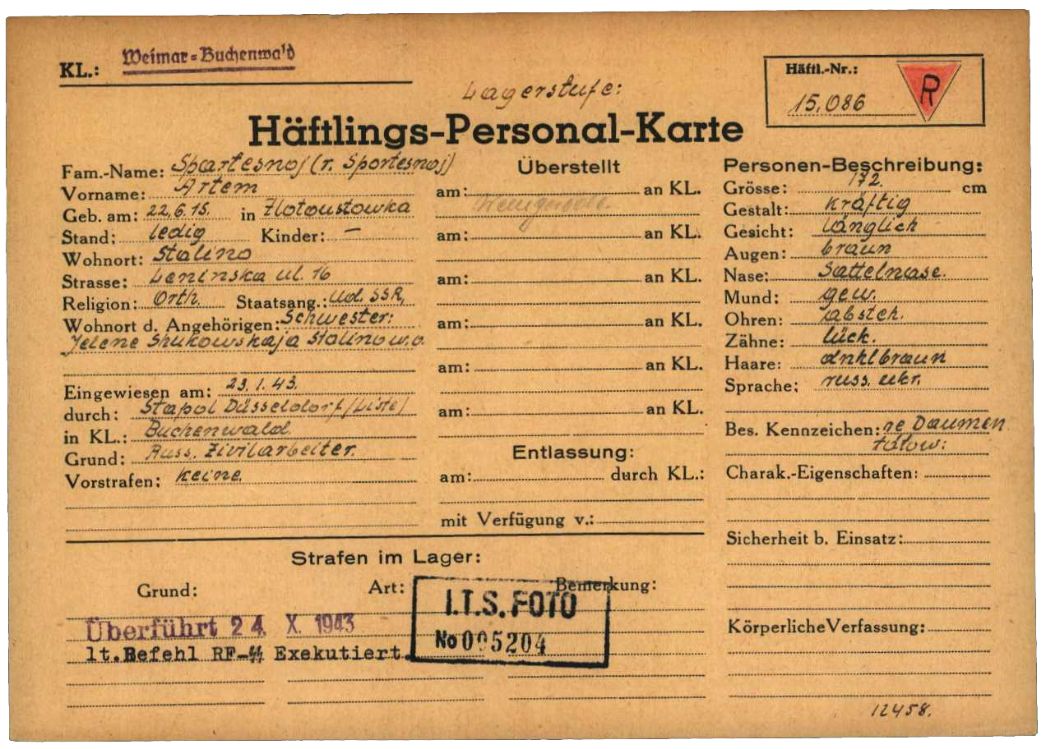 KL.: Weimar=Buchenwald
Lagerstufe:
Häftl.-Nr.:
15.086
R
Häftlings-Personal-Karte
Fam.-Name: Spartesnoj (r. Sportesnoj)
Vorname: Artem
Geb. am: 22.6.15. in Zlotoustowka
Stand: ledig Kinder: —
Wohnort: Stalino
Strasse: Leninska ul. 16
Religion: Orth. Staatsang.: Ud.SSR,
Wohnort d. Angehörigen: Schwester:
Jelene Shukowskaja Stalino w.o.
Eingewiesen am: 23.1.43.
durch: Stapol Düsseldorf /Liste/
in KL.: Buchenwald
Grund: Russ. Zivilarbeiter.
Vorstrafen: keine.
Überstellt
am: an KL.
am: an KL.
am: an KL.
am: an KL.
am: an KL.
am: an KL.
Entlassung:
am: durch KL.:
mit Verfügung v.:
Personen-Beschreibung:
Grösse: 172. cm
Gestalt: kräftig
Gesicht: länglich
Augen: braun
Nase: Sattelnase.
Mund: gew.
Ohren: absteh.
Zähne: lück.
Haare: dnklbraun
Sprache: russ. ukr.
Bes. Kennzeichen: re Daumen
tätow:
Charak.-Eigenschaften:
Sicherheit b. Einsatz:
Körperliche Verfassung:
Strafen im Lager:
Grund: Art: Bemerkung:
I.T.S. FOTO
No 005204
Überführt 24. X. 1943
lt.Befehl RF-SS Exekutiert.
12458.